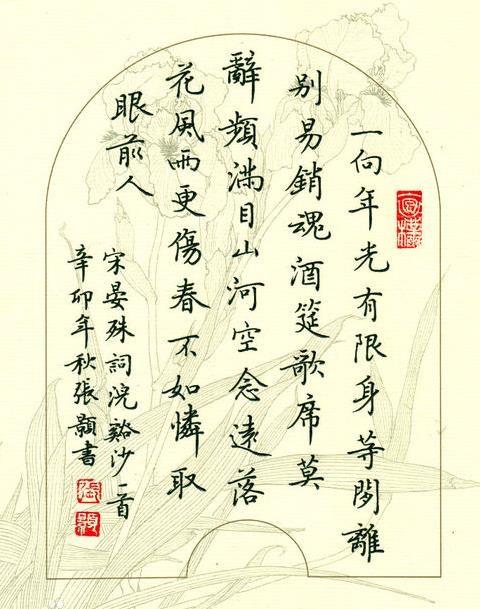 一向年光有限身等閒離
别易銷魂酒筵歌席莫
辭頻滿目山河空念遠落
花風雨更傷春不如憐取
眼前人
宋晏殊詞浣谿沙一首
辛卯年秋張顥書